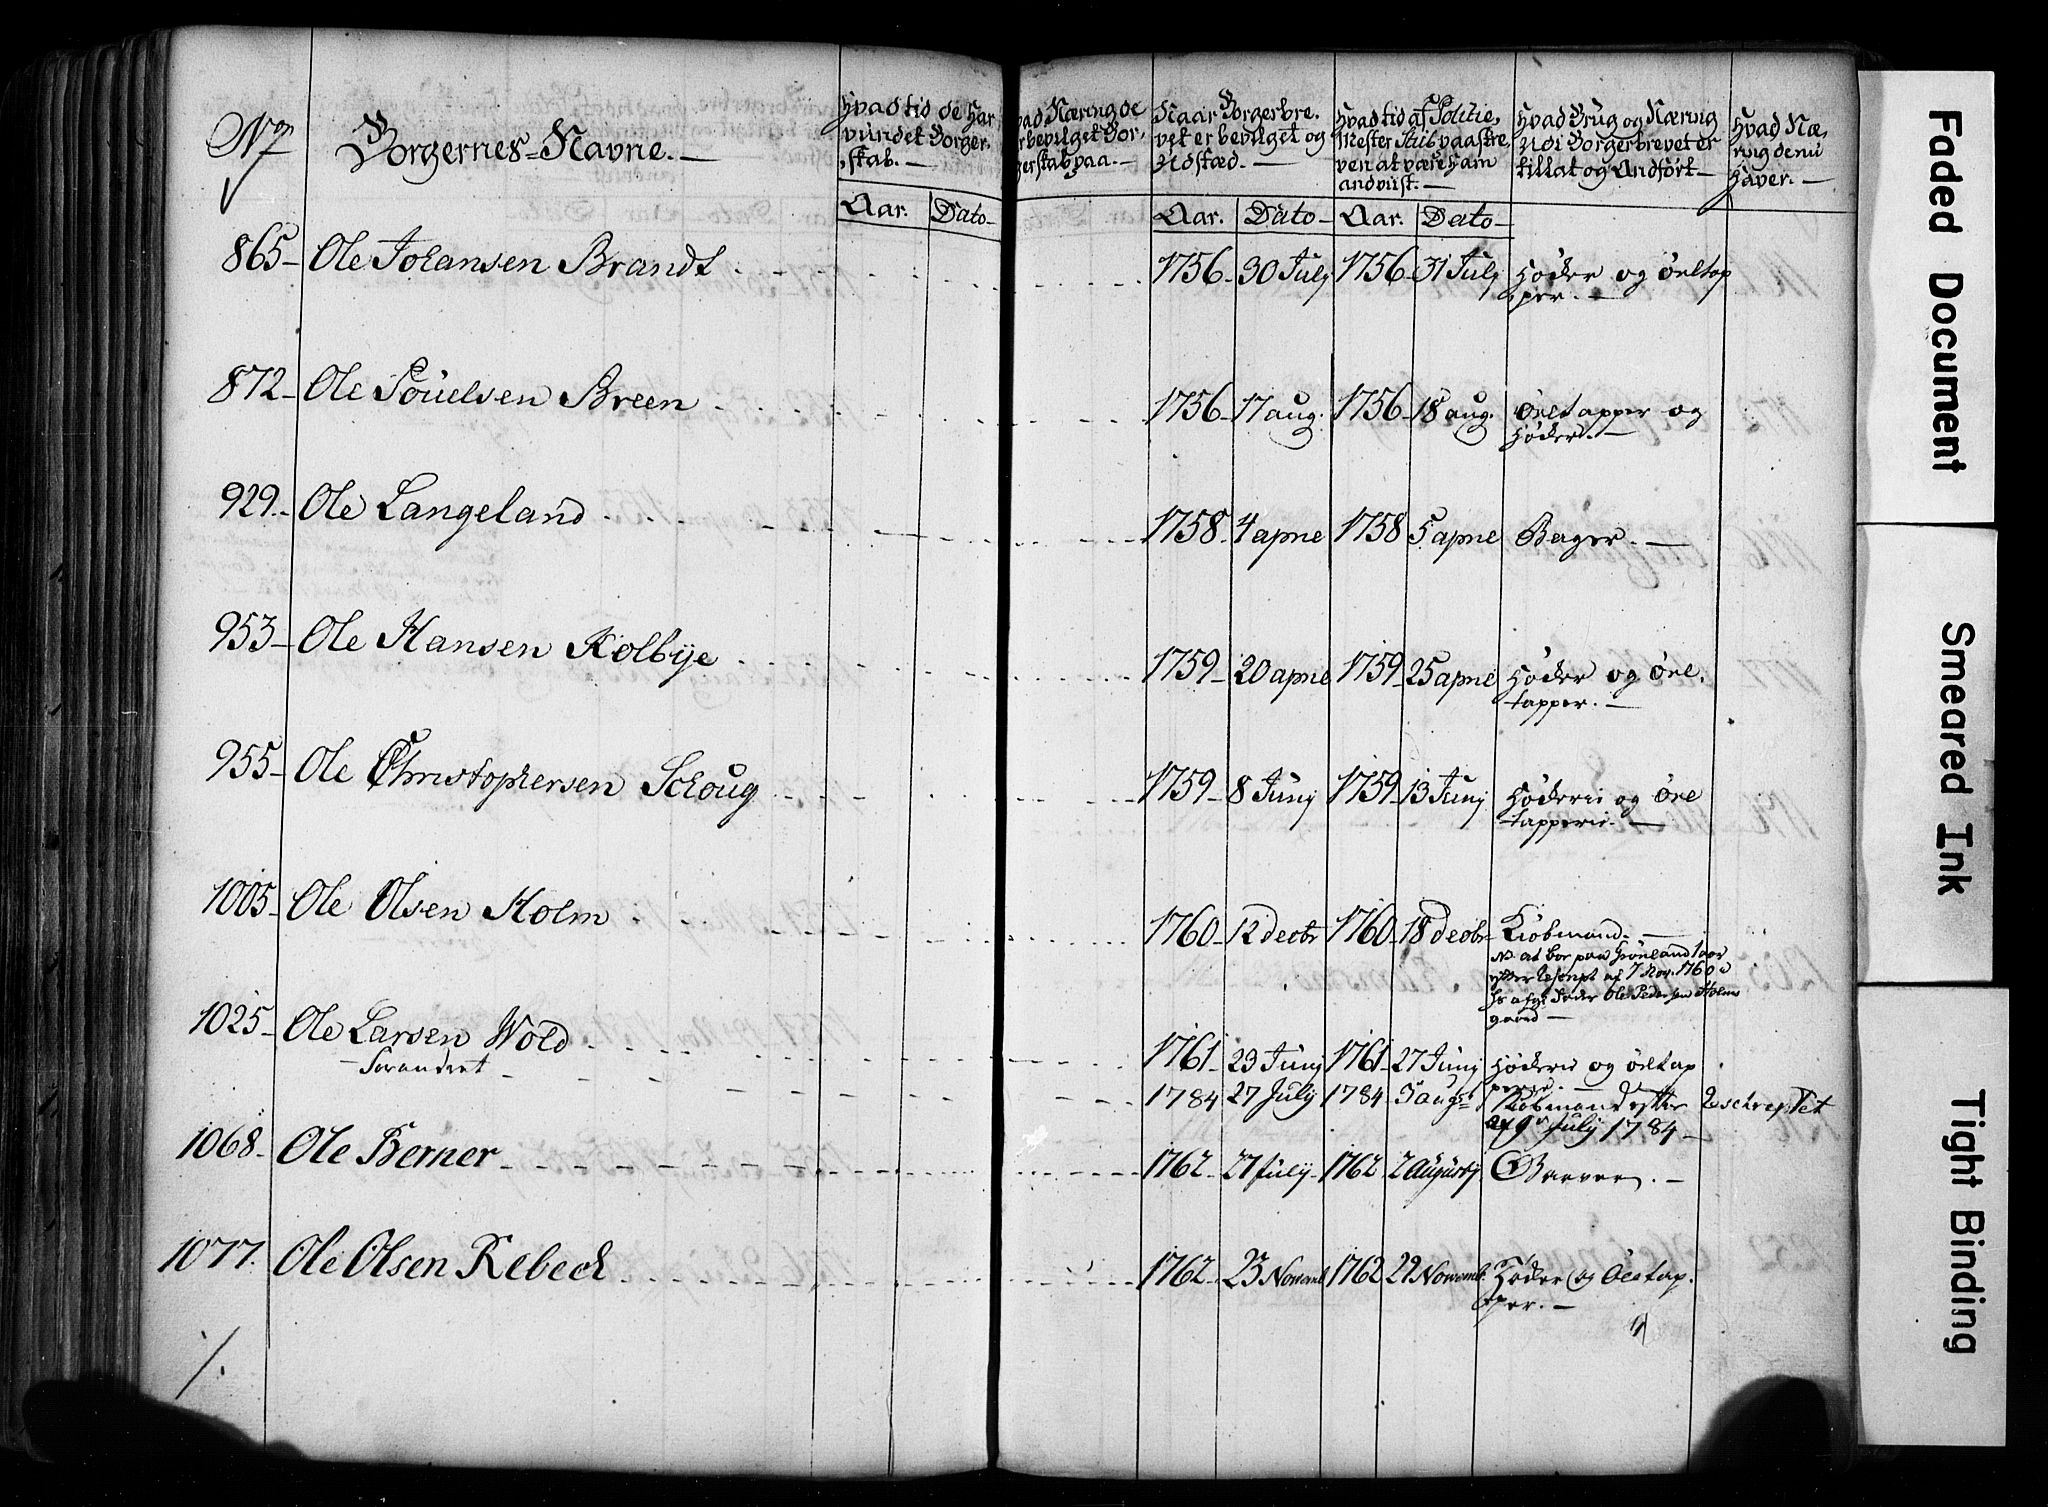 No
Borgernes Navne. —
Hvad tid de har
vundet Borger-
skab. —
Aar. Dato
Hvad Næring de
er bevilget Bor-
gerskab paa. —
Naar Borgerbre-
vet er bevilget og
Udstæd. —
Aar. Dato
Hvad tid af Politie
Mester Skib paaskre-
ven at være ham
andviist. —
Aar. Dato
Hvad Brug og Næring
Udi Borgerbrevet er
tillat og Andført —
Hvad Næ-
ring de nu
Haver. —
865 Ole Johansen Brandt 1756 30 July 1756 31 July Høcker og Øeltap
per. —
872 Ole Poüelsen Breen 1756 17 aug. 1756 18 aug. Øeltapper og
Høcker. —
929 Ole Langeland 1758 4 aprie 1758 5 aprie Bager. —
953 Ole Hansen Kolbye 1759 20 aprie 1759 25 aprie Høcker og Øel-
tapper. —
955 Ole Christophersen Schoug 1759 8 Junj 1759 13 Junj Høckerie og Øel
tapperie. —
1005 Ole Olsen Holm 1760 12 decbr 1760 18 decbr Kiøbmand. —
NB at boe paa Grønland
efter Rescript af 7 Nov. 1760
Ole Pedersen Holm
gaard —
1025 Ole Larsen Wold 1761 23 Junj 1761 27 Junj Høckerie og Øeltap
perie. —
Forandret 1784 27 July 1784 5 aug Kiøbmand efter Reschreptet
af 9de July 1784 —
1068 Ole Berner 1762 27 July 1762 2 Augustj Garver. —
1077 Ole Olsen Rebeck 1762 23 Novemb 1762 29 Novemb. Høcker og Øeltap-
per. —
Faded Document
Smeared Ink
Tight Binding